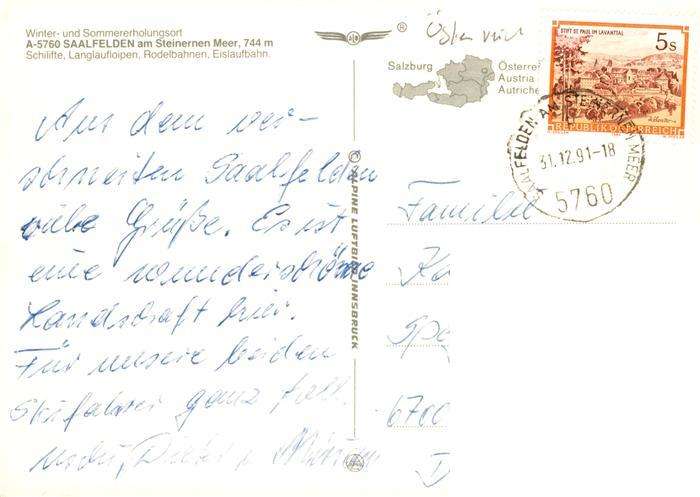 Winter- und Sommererholungsort
A-5760 SAALFELDEN am Steinernen Meer, 744 m
Schilifte, Langlaufloipen, Rodelbahnen, Eislaufbahn.
®
Österreich
Salzburg
Österre
Austria
Autriche
STIFT ST. PAUL IM LAVANTTAL
5s
REPUBLIK ÖSTERREICH
SAALFELDEN AM STEINERNEN MEER
31.12.91-18
5760
© ALPINE LUFTBILD INNSBRUCK
Aus dem ver-
schneiten Saalfelden
viele Grüße. Es ist
eine wunderschöne
Landschaft hier.
Für unsere beiden
Skifahrer ganz toll.
Dieter u.
Familie
Ka
Spe
6700